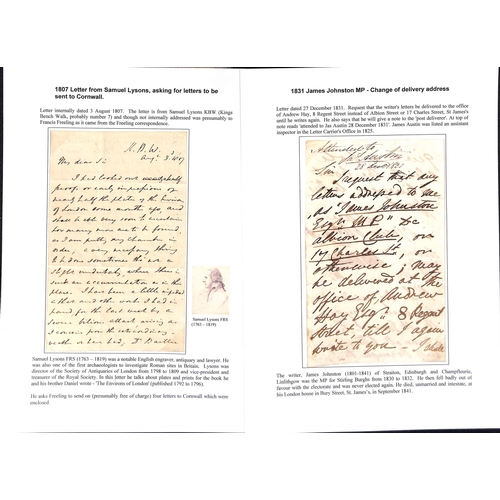 1807 Letter from Samuel Lysons, asking for letters to be
sent to Cornwall.
Letter internally dated 3 August 1807. The letter is from Samuel Lysons KBW (Kings
Bench Walk, probably number 7) and though not internally addressed was presumably to
Francis Freeling as it came from the Freeling correspondence.
K.B.W.
Aug. 3 1807
My dear Sir
I had looked out
proof, or early impressions of
nearly half the plates of the Environs
of London some months ago, and
shall be able very soon to
how many more are to be found,
as I am putting my Chambers in
order,
sometimes there
where there is
such an accumulation as in this
place. I have been a little
that and other work. I had
for the last week by a
bilious attack
Samuel Lysons FRS
(1763 – 1819)
Samuel Lysons FRS (1763 – 1819) was a notable English engraver, antiquary and lawyer. He
was also one of the first archaeologists to investigate Roman sites in Britain. Lysons was
director of the Society of Antiquaries of London from 1798 to 1809 and vice-president and
treasurer of the Royal Society. In this letter he talks about plates and prints for the book he
and his brother Daniel wrote - 'The Environs of London' (published 1792 to 1796).
He asks Freeling to send on (presumably free of charge) four letters to Cornwall which were
enclosed.
1831 James Johnston MP - Change of delivery address
Letter dated 27 December 1831. Request that the writer's letters be delivered to the office
of Andrew Hay, 8 Regent street instead of Albion Street or 17 Charles Street, St James's
until he writes again. He also says that he will give a note to the 'post deliverer'. At top of
note reads 'attended to Jas Austin 28 December 1831'. James Austin was listed an assistant
inspector in the Letter Carrier's Office in 1825.
Attended to
Jas Austin
28 Decr 1831
Sir
I request that any
letters addressed to me
as "James Johnston
Esqr MP" &c
Albion Club, or
17 Charles St, or
otherwise; may
be delivered at the
office of Andrew
Hay Esqr 8 Regent
Street, till I again
write to you –
The writer, James Johnston (1801-1841) of Straiton, Edinburgh and Champfleurie,
Linlithgow was the MP for Stirling Burghs from 1830 to 1832. He then fell badly out of
favour with the electorate and was never elected again. He died, unmarried and intestate, at
his London house in Bury Street, St. James's, in September 1841.